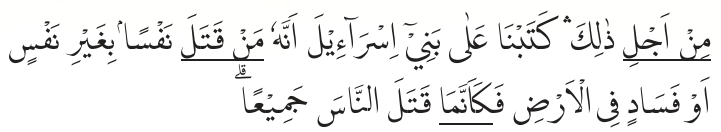 مِنْ اَجْلِ ذٰلِكَ ۛ كَتَبْنَا عَلٰى بَنِيْٓ اِسْرَآءِيْلَ اَنَّهٗ مَنْ قَتَلَ نَفْسًاۢ بِغَيْرِ نَفْسٍ
اَوْ فَسَادٍ فِى الْاَرْضِ فَكَاَنَّمَا قَتَلَ النَّاسَ جَمِيْعًا ۗ